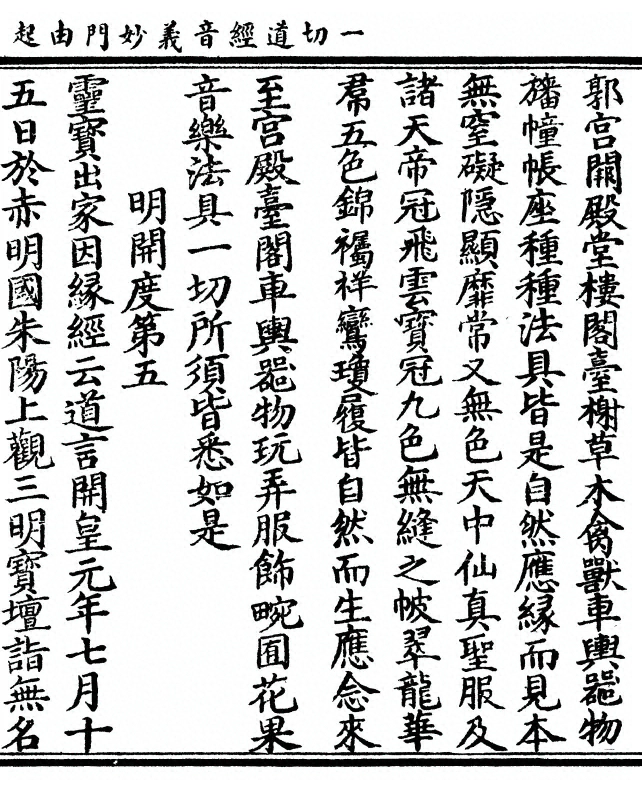 一切道經音義妙門由起
郭宫闕殿堂樓閣臺榭草木禽獸車輿器物
旛幢帳座種種法具皆是自然應緣而見本
無窒礙隱顯靡常又無色天中仙真聖服及
諸天帝冠飛雲寶冠九色無縫之帔翠龍華
帬五色錦襡祥鸞瓊履皆自然而生應念來
至宫殿臺閣車輿器物玩弄服飾畹囿花果
音樂法具一切所須皆悉如是
明開度第五
靈寶出家因緣經云道言開皇元年七月十
五日於赤明國朱陽上觀三明寶壇詣無名